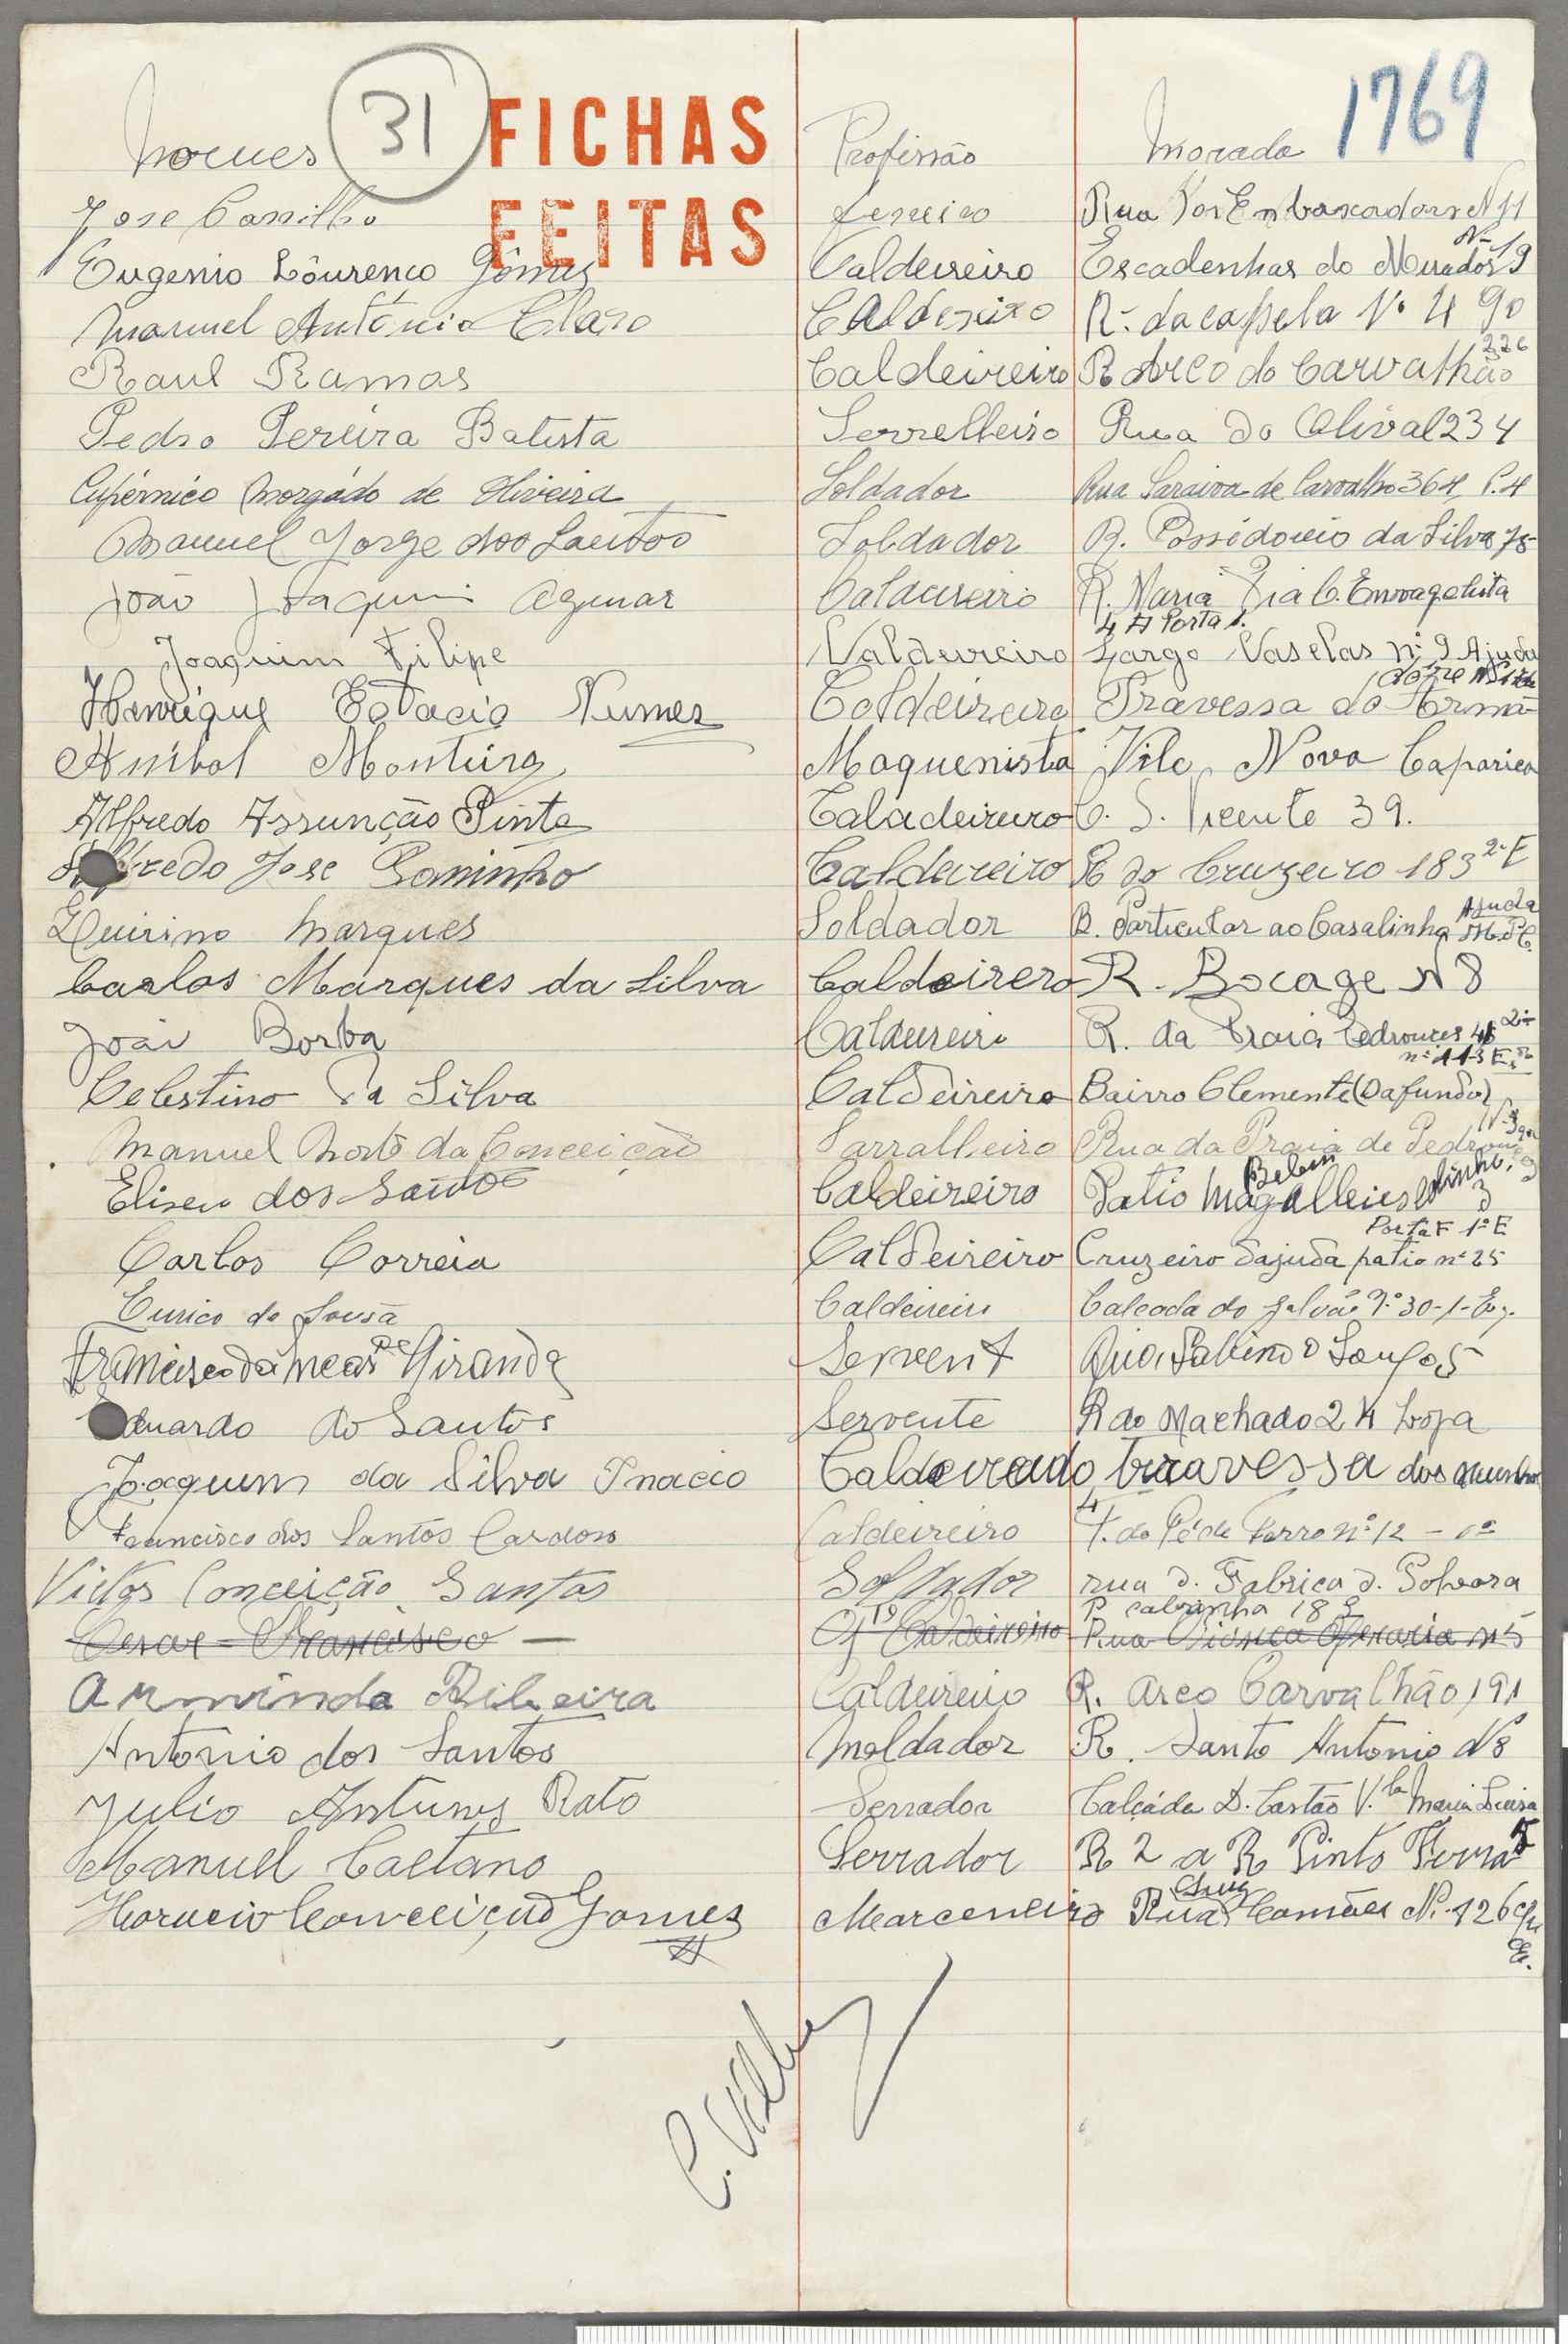 Nomes 31 FICHAS FEITAS Profissão Morada 1769
Jose Carrilho Rua Dos Embaxadores N 11
Eugenio Lôurenco Gômes Caldeireiro Escadenhas do Mirador Nº 19
Manuel António Claro Caldeireiro R. da capela Nº 4 90
Raul Ramos Caldeireiro R Arco do Carvalhão 226
Pedro Pereira Batista Serrelheiro Rua do Olival 234
Cupérnico Morgádo de Oliveira Soldador Rua Saraiva de Carvalho 364, P.4
Manuel Jorge dos Santos Soldador R. Possidonio da Silva 75
João Joaquim Aguiar Caldeireiro R. Maria Pia C. Envagelista
4 A Porta 1.
Joaquim Filipe Caldeireiro Largo Vaselas nº 9 Ajuda
Henrique Estacio Nunes Coldeireiro Travessa do Arma-
Anibal Monteiro Maquenista Vila Nova Caparica
Alfredo Assunção Pinto Caladeireiro C. S. Vicente 39.
Alfredo Jose Caminho Caldeireiro R do Cruzeiro 183 2º E
Quirino Marques Soldador R. Particular ao Casalinho Ajuda
Carlos Marques da Silva Caldeirero R. Bocage N 8
João Borba Caldeireiro R. da Praia Pedrouços
nº 113
Celestino da Silva Caldeireiro Bairro Clemente (Dafundo)
Manuel da Conceição Sarralheiro Rua da Praia de
Eliseu dos Santos Caldeireiro Patio Belem
Porta F 1º E
Carlos Correia Caldeireiro Cruzeiro dajuda patio nº 25
Eurico de Sousa Caldeireiro Calcada do Galvão Nº 30-1-Esq.
Francisco de Miranda Servent
Eduardo do Santos Servente R do Machado 24 Loja
Joaquim da Silva Inacio travessa dos
4
Francisco dos Santos Cardoso Caldeireiro T. do Pé de Ferro nº 12 - 1º
Victor Conceição Santos Soldador rua d. Fabrica d. Polvora
P cabrinha 18
Cesar Francisco Caldeireiro Rua Operaria nº 5
Arminda Ribeira Caldeireiro R. Arco Carvalhão 191
Antonio dos Santos Moldador R. Santo Antonio N 8
Julio Antunes Rato Serrador Calçáda D. Gastão V.la Maria Luisa
Manuel Caetano Serrador R 2 a R Pinto
Horacio Conceição Gomes Marceneiro Rua Camões Nº 126